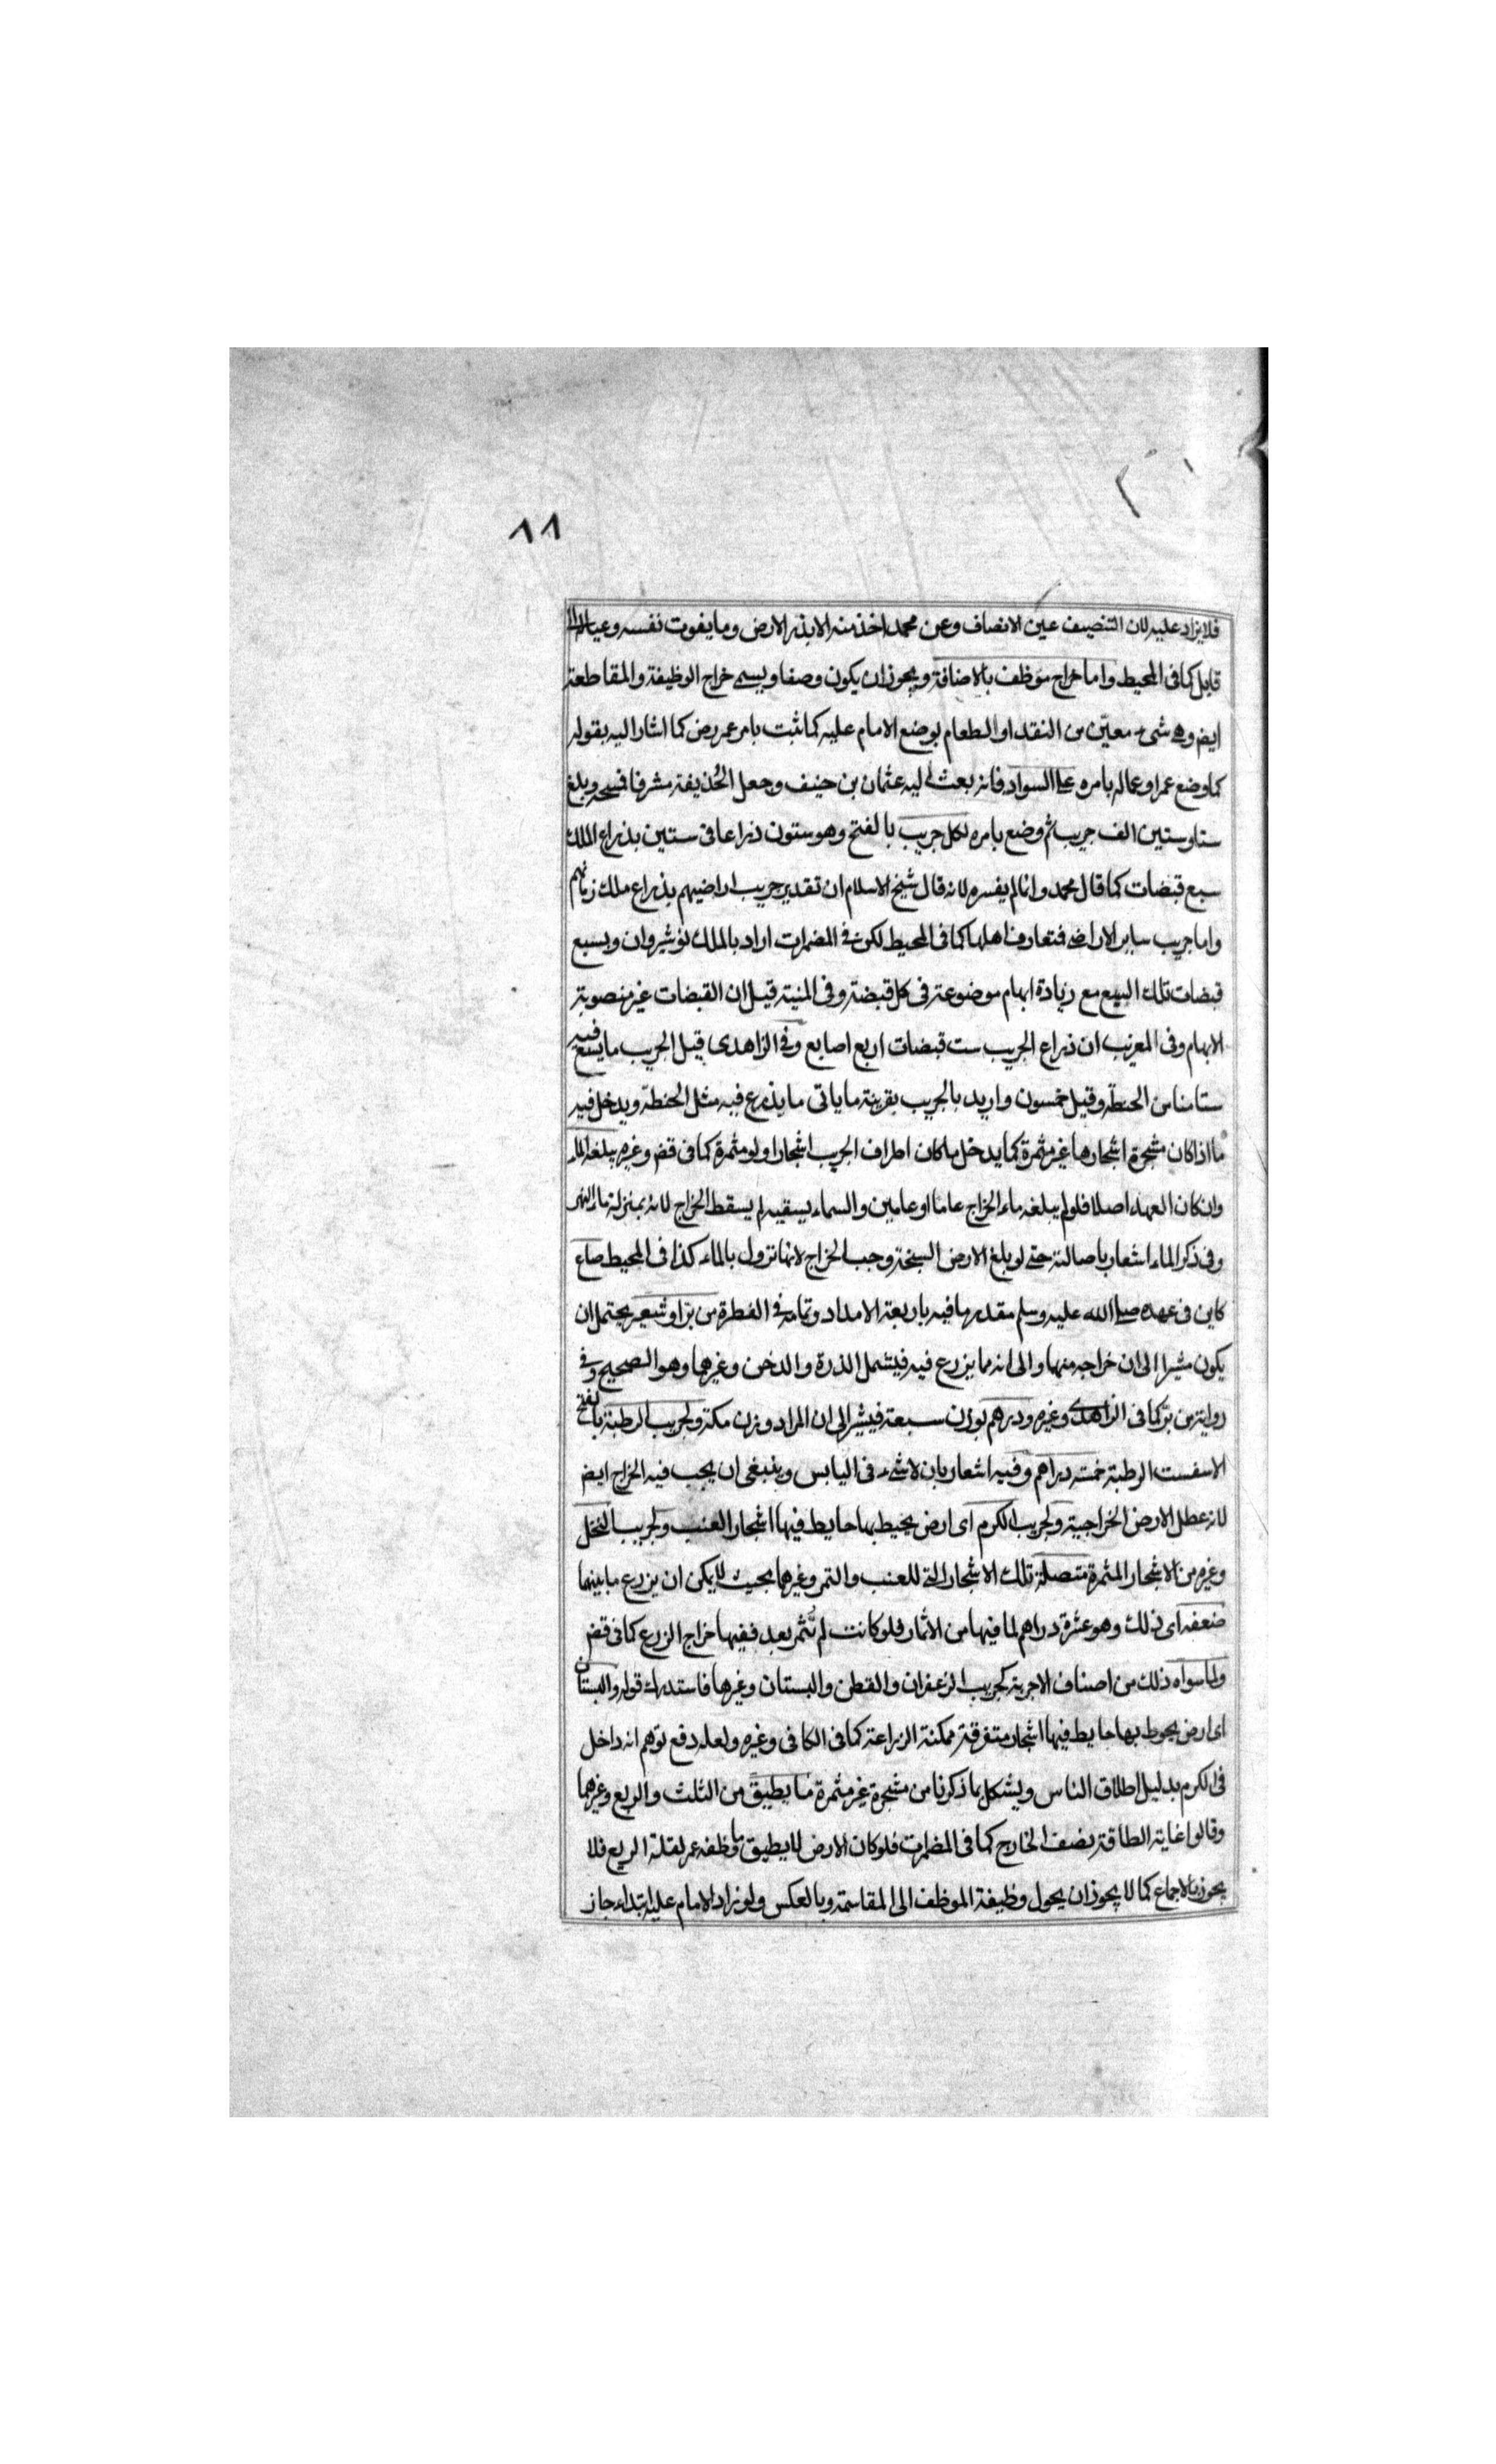 ٨٨
فلا يزاد عليه لان التنصيف عين الانصاف وعن محمد اخذ منه الا بذر الارض وما يقوت نفسه وعياله الى
قابل كما فى المحيط واما خراج موظف بالاضافة ويجوز ان يكون وصفا ويسمى خراج الوظيفة والمقاطعة
ايض وهى شىء معيّن من النقد او الطعام بوضع الامام عليه كما ثبت بامر عمر رض كما اشار اليه بقوله
كما وضع عمر او عماله بامره على السواد فانه بعث اليه عثمان بن حنيف وجعل الحُذيفة مشرفا فمسحه وبلغ
ستا وستين الف جريب ثم وضع بامره لكل جريب بالفتح وهو ستون ذراعا فى ستين بذراع الملك
سبع قبضات كما قال محمد وانما لم يفسره لانه قال شيخ الاسلام ان تقدير جريب اراضيهم بذراع ملك زمانهم
واما جريب ساير الاراضى فتعارف اهلها كما فى المحيط لكن فى المضمرات اراد بالملك نوشيروان وبسبع
قبضات تلك السبع مع زيادة ابهام موضوعة فى كل قبضة وفى المنية قيل ان القبضات غير منصوبة
الابهام وفى المغرب ان ذراع الجريب ست قبضات اربع اصابع وفى الزاهدى قيل الجريب ما يسع فيه
ستا منا من الحنطة وقيل خمسون واريد بالجريب بقرينة ما ياتى ما يزرع فيه مثل الحنطة ويدخل فيه
ما اذا كان مشجرة اشجارها غير مثمرة كما يدخل ما كان اطراف الجريب اشجارا ولو مثمرة كما فى قض وغيره يبلغه الماء
وان كان العهد اصلا فلو لم يبلغه ماء الخراج عاما او عامين والسماء يسقيه لم يسقط الخراج لانه بمنزلة ماء النهر
وفى ذكر الماء اشعار باصالته حتى لو بلغ الارض السبخة وجب الخراج لانها تزول بالماء كذا فى المحيط صاع
كاين فى عهده صلى الله عليه وسلم مقدر ما فيه باربعة الامداد وتمامه فى الفطرة من برّ او شعير يحتمل ان
يكون مشيرا الى ان خراجه منهما والى انه مما يزرع فيه فيشمل الذرة والدخن وغيرهما وهو الصحيح وفى
رواية من برّ كما فى الزاهدى وغيره ودرهم بوزن سبعة فيشير الى ان المراد وزن مكة ولجريب الرطبة بالفتح
الاسفست الرطبة خمسة دراهم وفيه اشعار بان لا شىء فى اليابس وينبغى ان يجب فيه الخراج ايض
لانه عطل الارض الخراجية ولجريب الكرم اى ارض يحيط بها حايط فيها اشجار العنب ولجريب النخل
وغيره من الاشجار المثمرة متصلة تلك الاشجار التى للعنب والتمر وغيرها بحيث لا يمكن ان يزرع ما بينهما
ضعفه اى ذلك وهو عشرة دراهم لما فيها من الاثمار فلو كانت لم تُثمر بعد ففيها خراج الزرع كما فى قض
ولما سواه ذلك من اصناف الاجربة كجريب الزعفران والقطن والبستان وغيرها فاستدرك قوله والبستان
اى ارض يحوط بها حايط فيها اشجار متفرقة ممكنة الزراعة كما فى الكافى وغيره ولعله دفع توهم انه داخل
فى الكرم بدليل اطلاق الناس ويشكل بما ذكرنا من مشجرة غير مثمرة ما يطيق من الثلث والربع وغيرهما
وقالوا غاية الطاقة نصف الخارج كما فى المضمرات فلو كان الارض لا يطيق ما وظفه عمر لقلة الريع فلا
يجوز بالاجماع كما لا يجوز ان يحول وظيفة الموظف الى المقاسمة وبالعكس ولو زاد الامام عليه ابتداء جاز